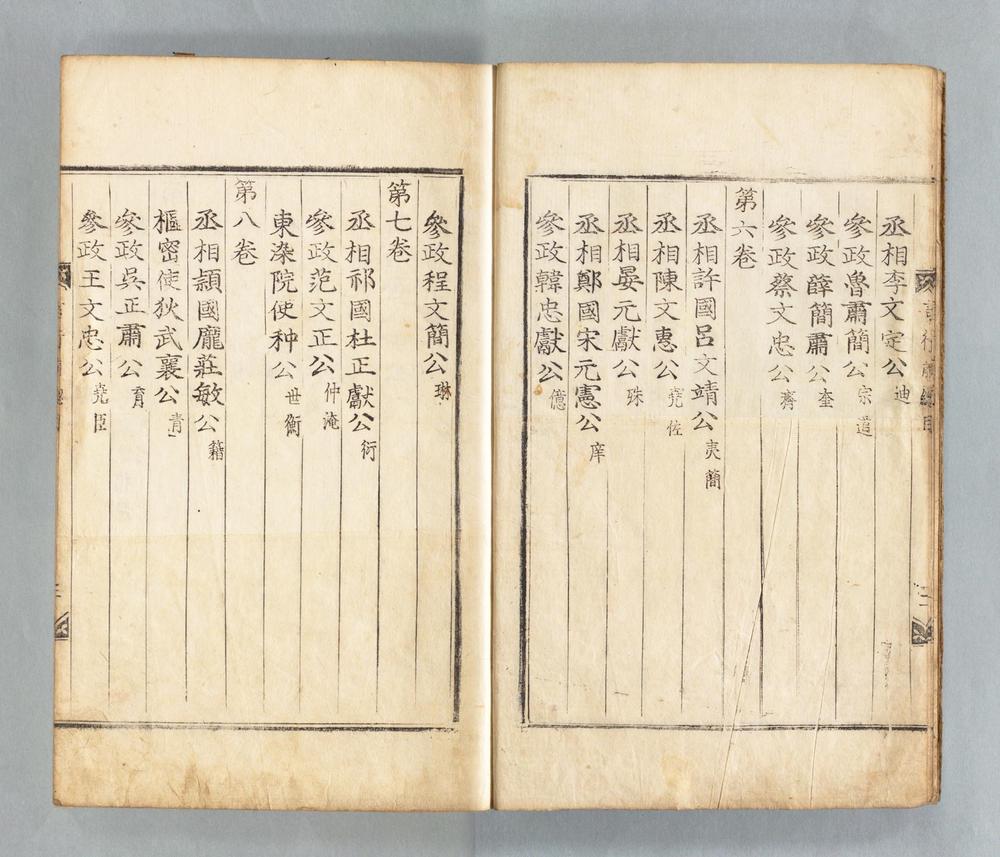 丞相李文定公迪
參政魯肅簡公宗道
參政薛簡肅公奎
參政蔡文忠公齊
第六卷
丞相許國呂文靖公夷簡
丞相陳文惠公堯佐
丞相晏元獻公殊
丞相鄭國宋元憲公庠
參政韓忠獻公億
參政程文簡公琳
第七卷
丞相祁國杜正獻公衍
參政范文正公仲淹
東染院使种公世衡
第八卷
丞相潁國龐莊敏公籍
樞密使狄武襄公青
參政吳正肅公育
參政王文忠公堯臣